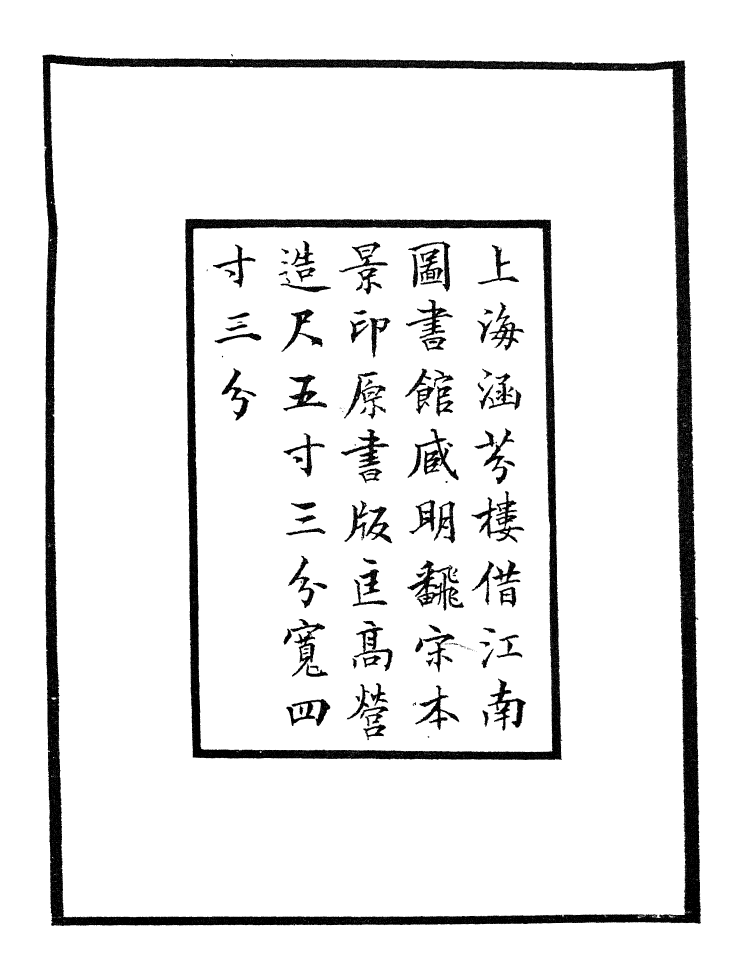 上海涵芬樓借江南
圖書館臧明飜宋本
景印原書版匡高營
造尺五寸三分寬四
寸三分